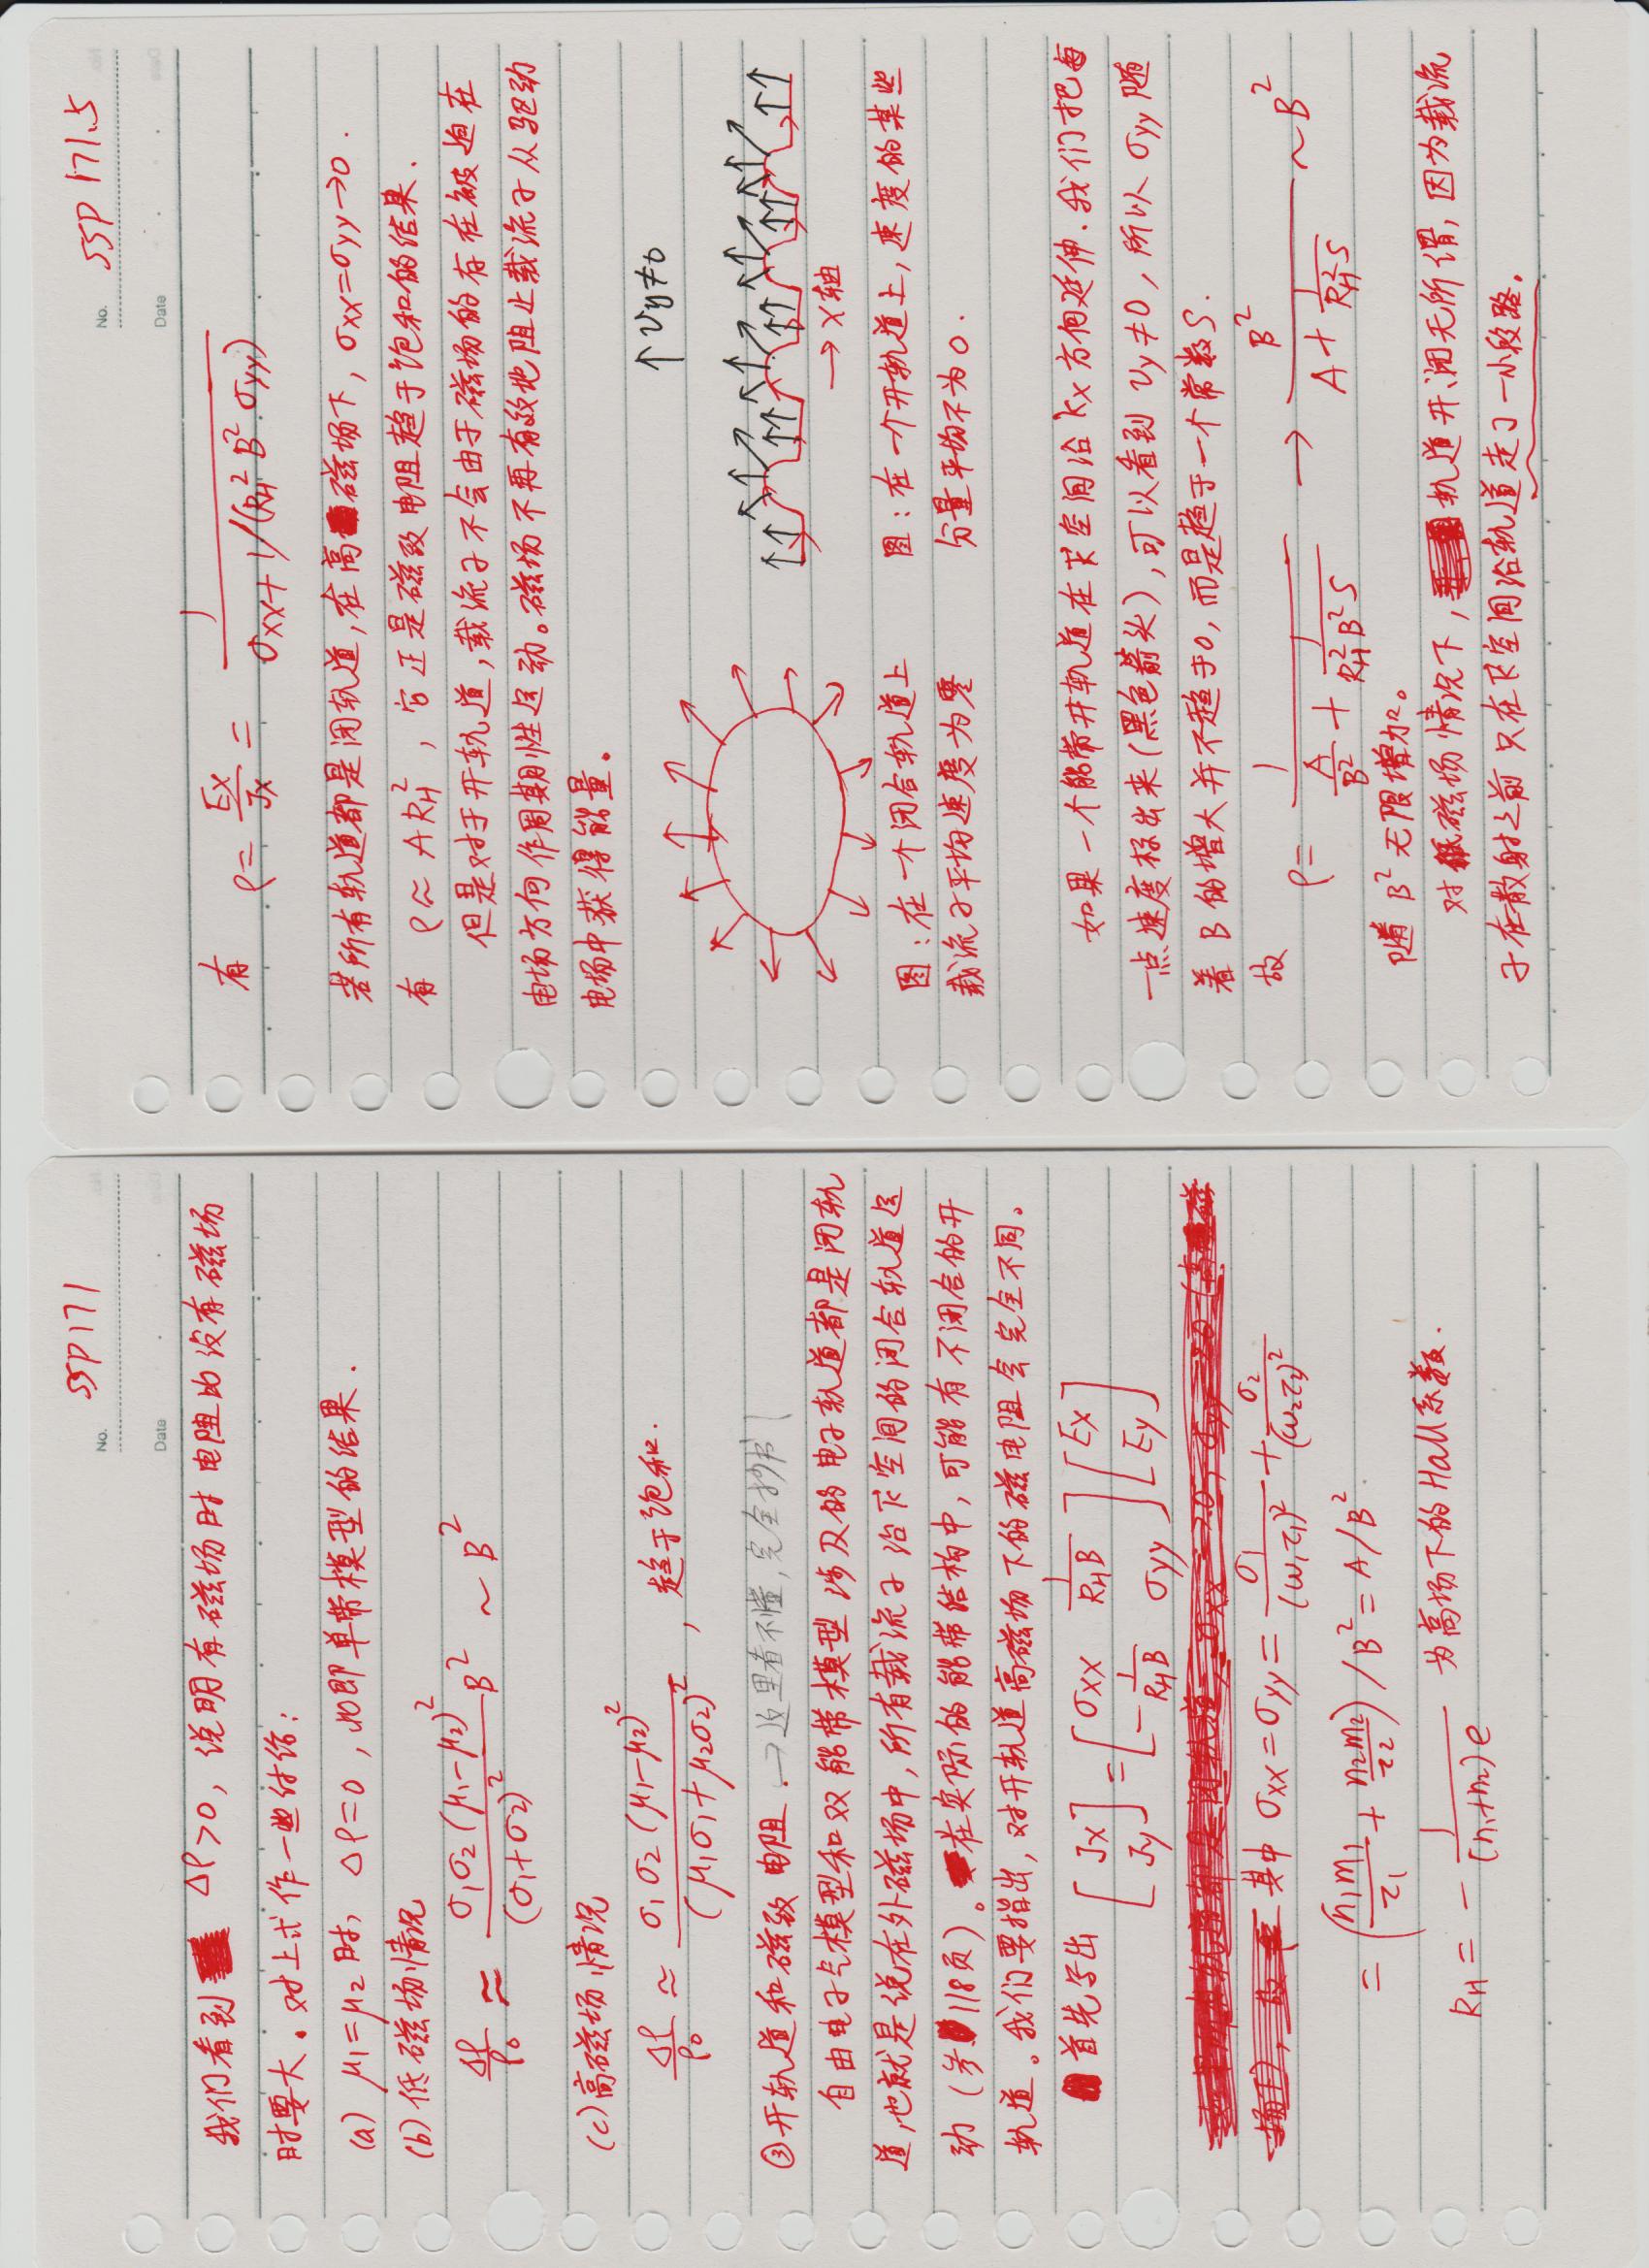 No. SSP171
Date
我们看到 Δρ>0, 说明有磁场时电阻比没有磁场
时要大。对上式作一些讨论:
(a) μ₁=μ₂时, Δρ=0, 此即单带模型的结果.
(b) 低磁场情况
Δρ/ρ₀ ≈ σ₁σ₂(μ₁-μ₂)²/(σ₁+σ₂)² B² ~ B²
(c) 高磁场情况
Δρ/ρ₀ ≈ σ₁σ₂(μ₁-μ₂)²/(μ₁σ₁+μ₂σ₂)², 趋于饱和.
③开轨道和磁致电阻. →这里看不懂, 完全抄书!
自由电子气模型和双能带模型涉及的电子轨道都是闭轨
道, 也就是说在外磁场中, 所有载流子沿k⃗空间的闭合轨道运
动 (参118页)。在实际的能带结构中, 可能有不闭合的开
轨道。我们要指出, 对开轨道高磁场下的磁电阻会完全不同。
首先写出 [Jx Jy] = [σxx 1/(R_H B) -1/(R_H B) σyy] [Ex Ey]
其中 σxx=σyy= σ₁/(ω₁τ₁)² + σ₂/(ω₂τ₂)²
= (n₁m₁/τ₁ + n₂m₂/τ₂) / B² = A/B².
R_H = - 1/((n₁+n₂)e) 为高场下的Hall系数.
No. SSP 171.5
Date
有 ρ= Ex/Jx = 1/(σxx+1/(R_H² B² σyy))
若所有轨道都是闭轨道, 在高磁场下, σxx=σyy→0.
有 ρ≈ A R_H², 它正是磁致电阻趋于饱和的结果.
但是对于开轨道, 载流子不会由于磁场的存在被迫在
电场方向作周期性运动。磁场不再有效地阻止载流子从驱动
电场中获得能量。
↑ vy≠0
→ x轴
图: 在一个闭合轨道上
载流子平均速度为零
图: 在一个开轨道上, 速度的某些
分量平均不为0.
如果一个能带开轨道在k⃗空间沿kx方向延伸. 我们把每
一点速度标出来(黑色箭头), 可以看到 vy≠0, 所以 σyy 随
着 B 的增大并不趋于0, 而是趋于一个常数S.
故 ρ= 1/(A/B² + 1/(R_H² B² S)) → B²/(A + 1/(R_H² S)) ~ B²
随 B² 无限增加。
对低磁场情况下, 轨道开、闭无所谓, 因为载流
子在散射之前只在k⃗空间沿轨道走了一小段路。